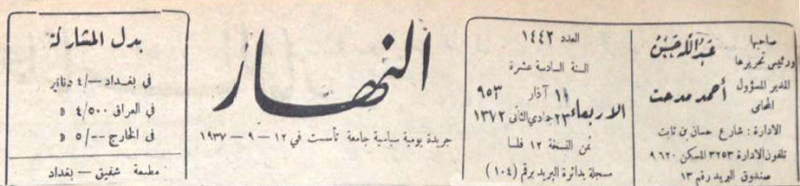 صاحبها
ورئيس تحريرها
عبدالله حسين
المدير المسؤول
المحامي
أحمد مدحت
الادارة : شارع حسان بن ثابت
تلفون الادارة ٣٢٥٣ المسكن ٩٦٢٠
صندوق البريد رقم ١٣
العدد ١٤٤٢
السنة السادسة عشرة
الاربعاء
١١ آذار ٩٥٣
٢٣ جمادي الثاني ١٣٧٢
ثمن النسخة ١٢ فلسا
مسجلة بدائرة البريد برقم (١٠٤)
النهار
جريدة يومية سياسية جامعة تأسست في ١٢ – ٩ – ١٩٣٧
بدل المشاركة
في بغداد –/٤ دنانير
في العراق ٤/٥٠٠ د
في الخارج ٥/٠٠ د
مطبعة شفيق – بغداد